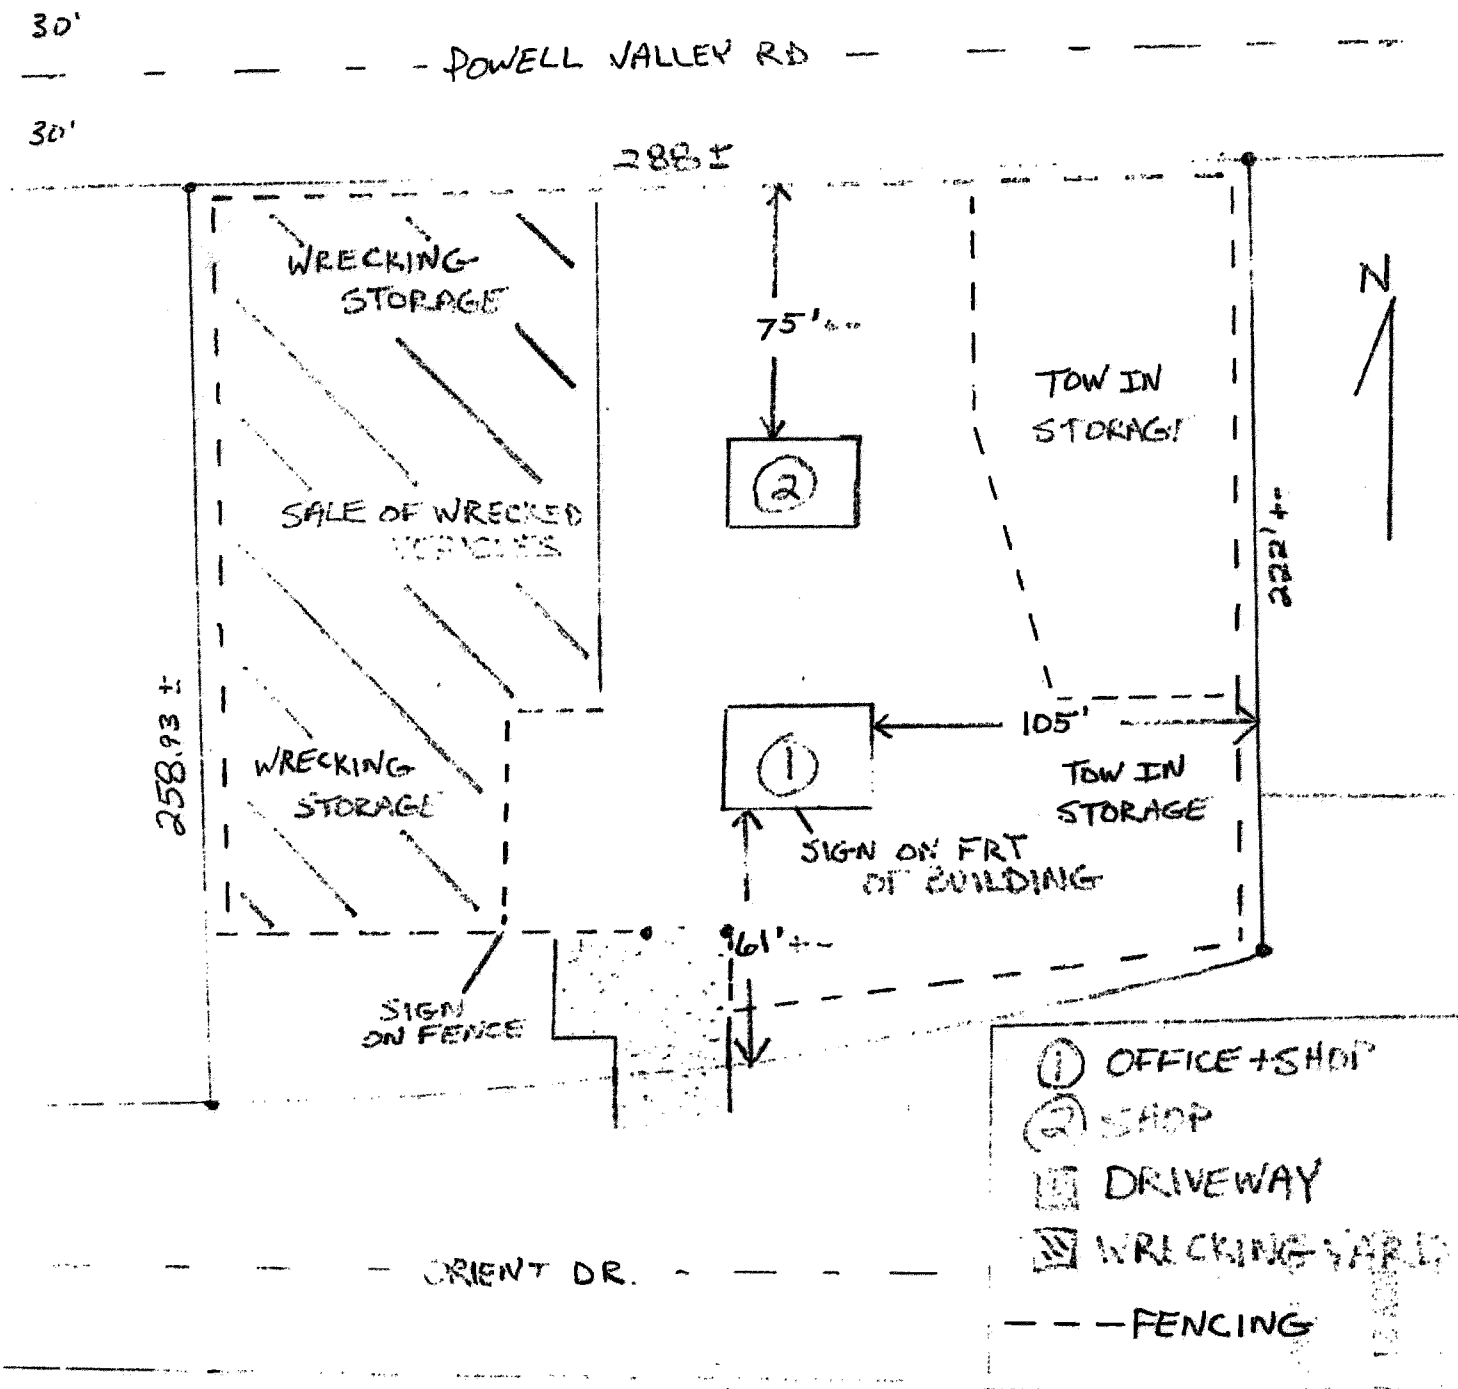 30'
POWELL VALLEY RD
30'
288 ±
WRECKING
STORAGE
75' +-
N
TOW IN
STORAGE
2
SALE OF WRECKED
VEHICLES
222' +-
258.93 ±
105'
1
WRECKING
STORAGE
TOW IN
STORAGE
SIGN ON FRT
OF BUILDING
61' +-
SIGN
ON FENCE
1 OFFICE + SHOP
2 SHOP
DRIVEWAY
WRECKING YARD
ORIENT DR.
FENCING